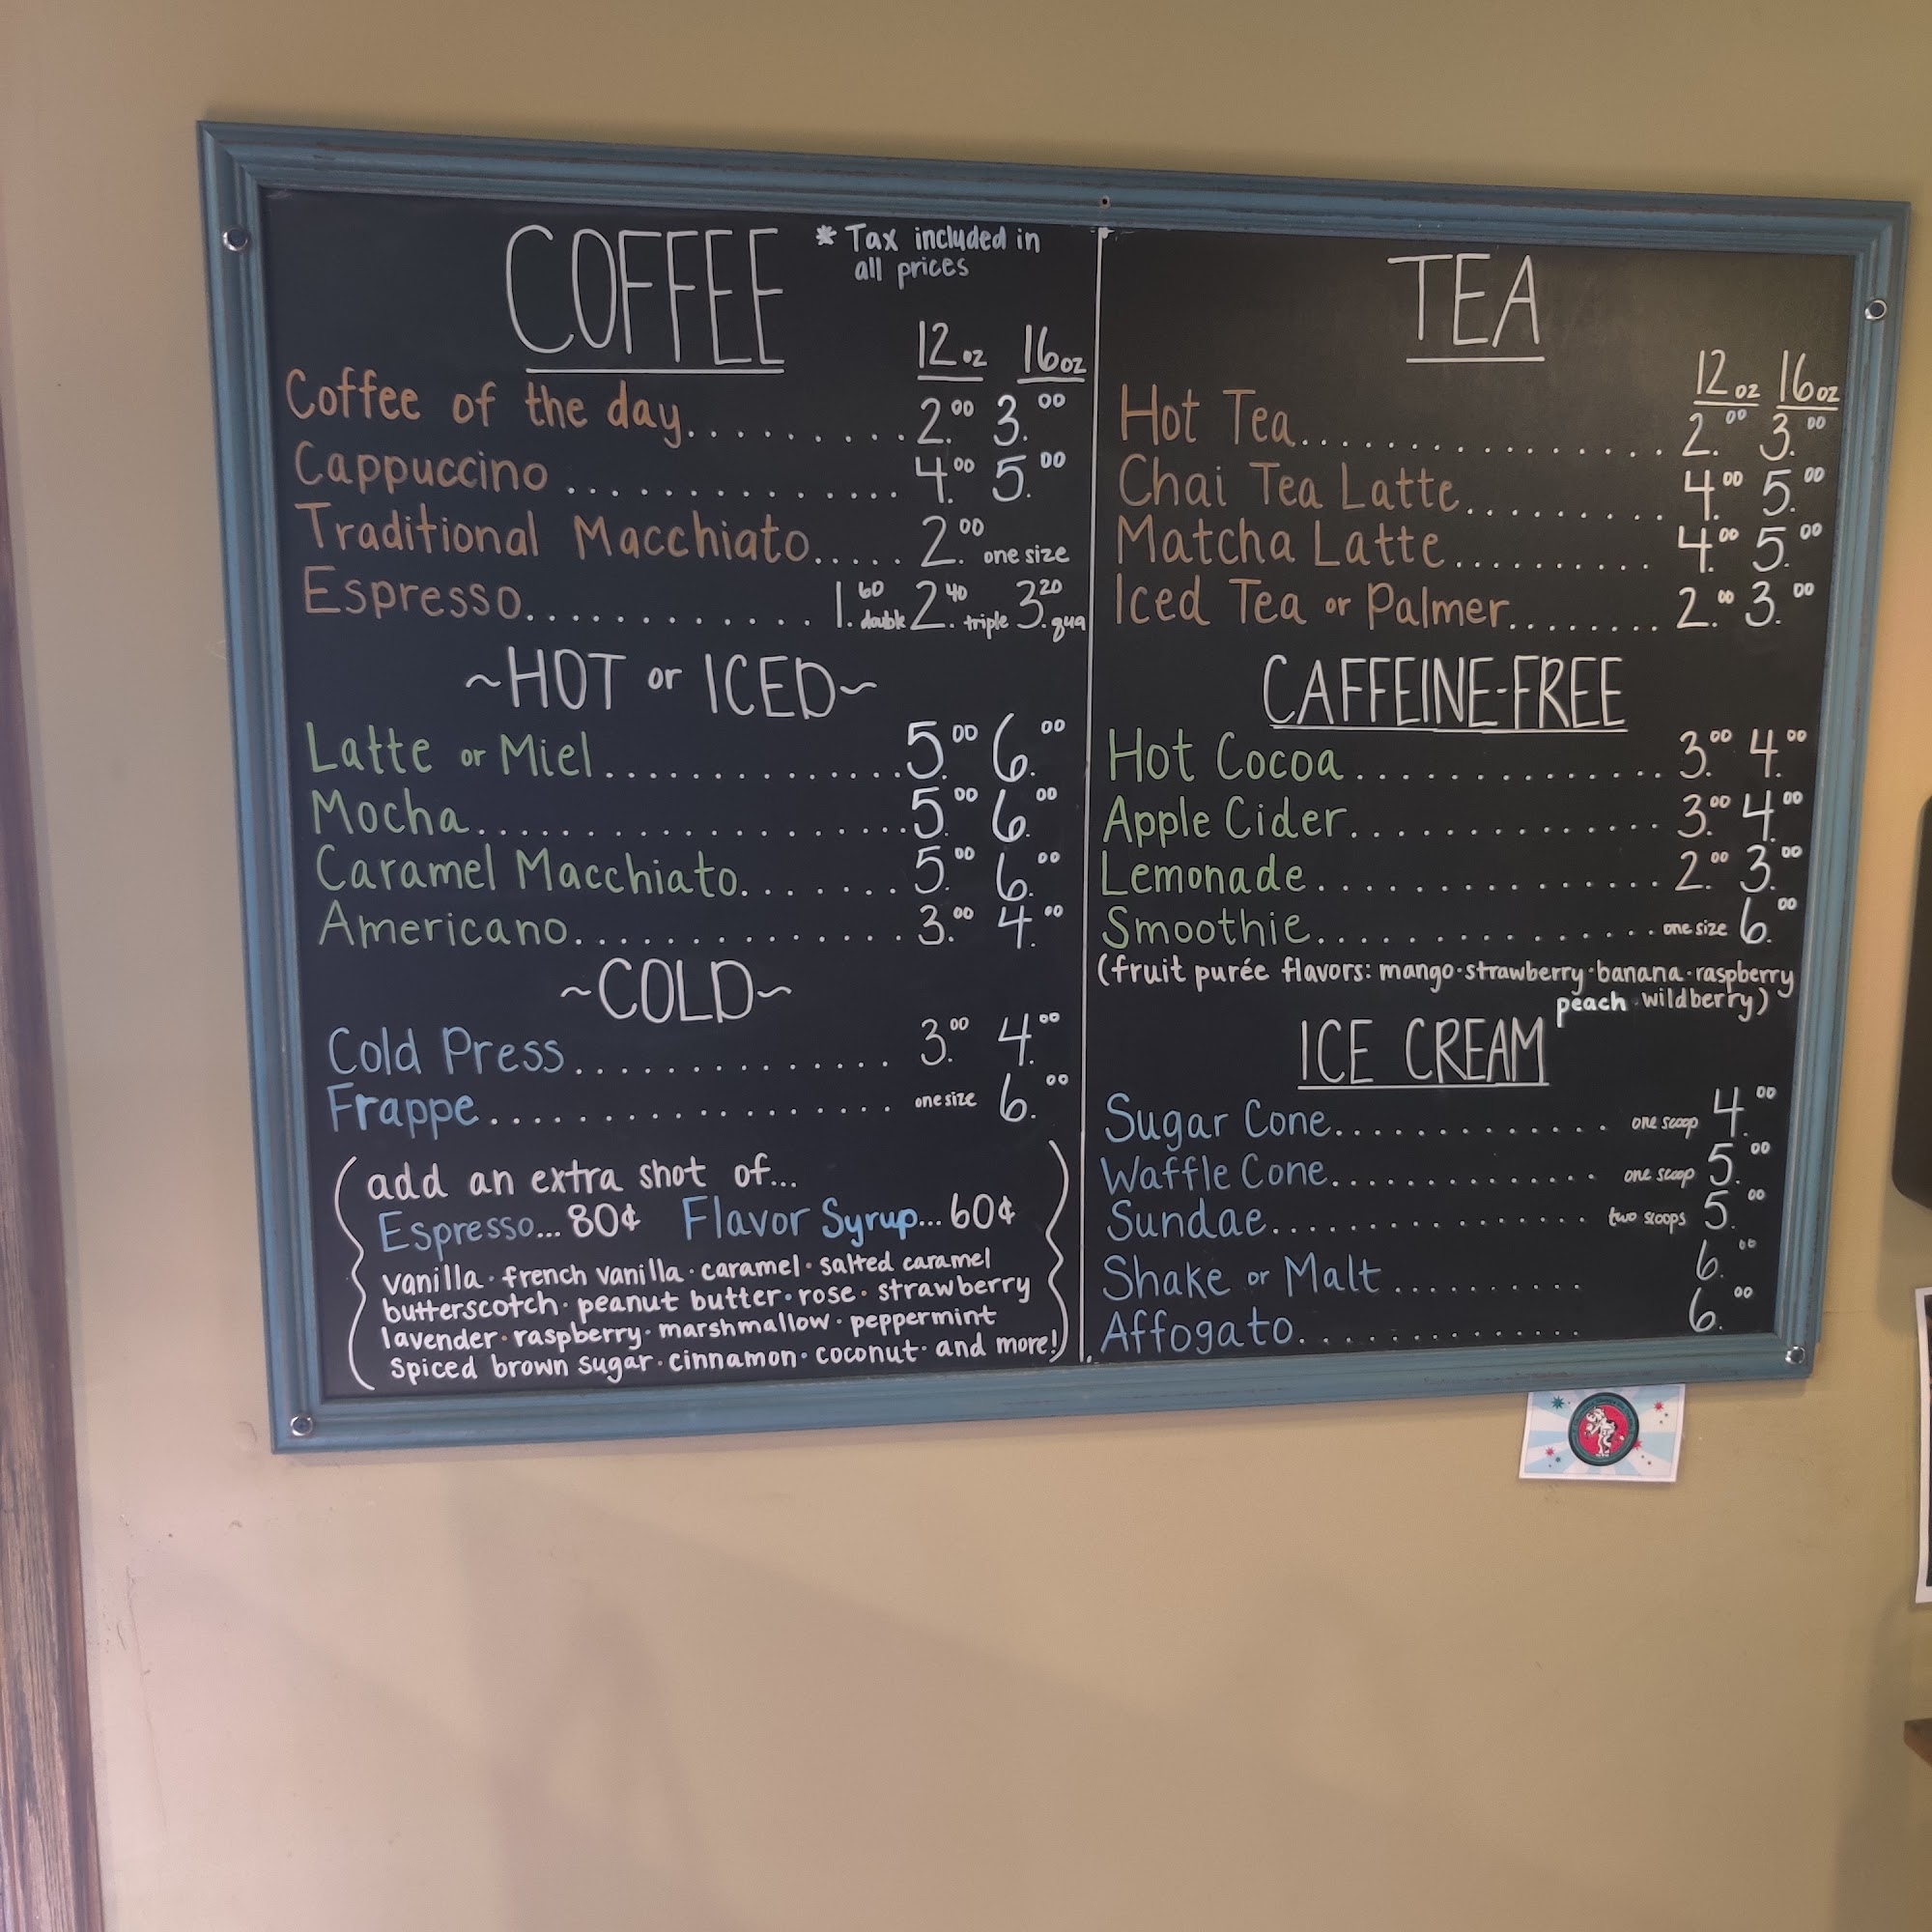 COFFEE
* Tax included in
all prices
12 oz 16 oz
Coffee of the day.......... 2.00 3.00
Cappuccino .............. 4.00 5.00
Traditional Macchiato..... 2.00 one size
Espresso............ 1.60 double 2.40 triple 3.20 qua
~HOT or ICED~
Latte or Miel.............. 5.00 6.00
Mocha................... 5.00 6.00
Caramel Macchiato....... 5.00 6.00
Americano.............. 3.00 4.00
~COLD~
Cold Press.............. 3.00 4.00
Frappe.................. one size 6.00
(add an extra shot of...
Espresso... 80¢ Flavor Syrup... 60¢
vanilla · french vanilla · caramel · salted caramel
butterscotch · peanut butter · rose · strawberry
lavender · raspberry · marshmallow · peppermint
spiced brown sugar · cinnamon · coconut · and more!)
TEA
12 oz 16 oz
Hot Tea................ 2.00 3.00
Chai Tea Latte......... 4.00 5.00
Matcha Latte.......... 4.00 5.00
Iced Tea or Palmer........ 2.00 3.00
CAFFEINE-FREE
Hot Cocoa.............. 3.00 4.00
Apple Cider.............. 3.00 4.00
Lemonade................ 2.00 3.00
Smoothie................ one size 6.00
(fruit purée flavors: mango · strawberry · banana · raspberry
peach · wildberry)
ICE CREAM
Sugar Cone............. one scoop 4.00
Waffle Cone............. one scoop 5.00
Sundae............... two scoops 5.00
Shake or Malt.......... 6.00
Affogato............. 6.00